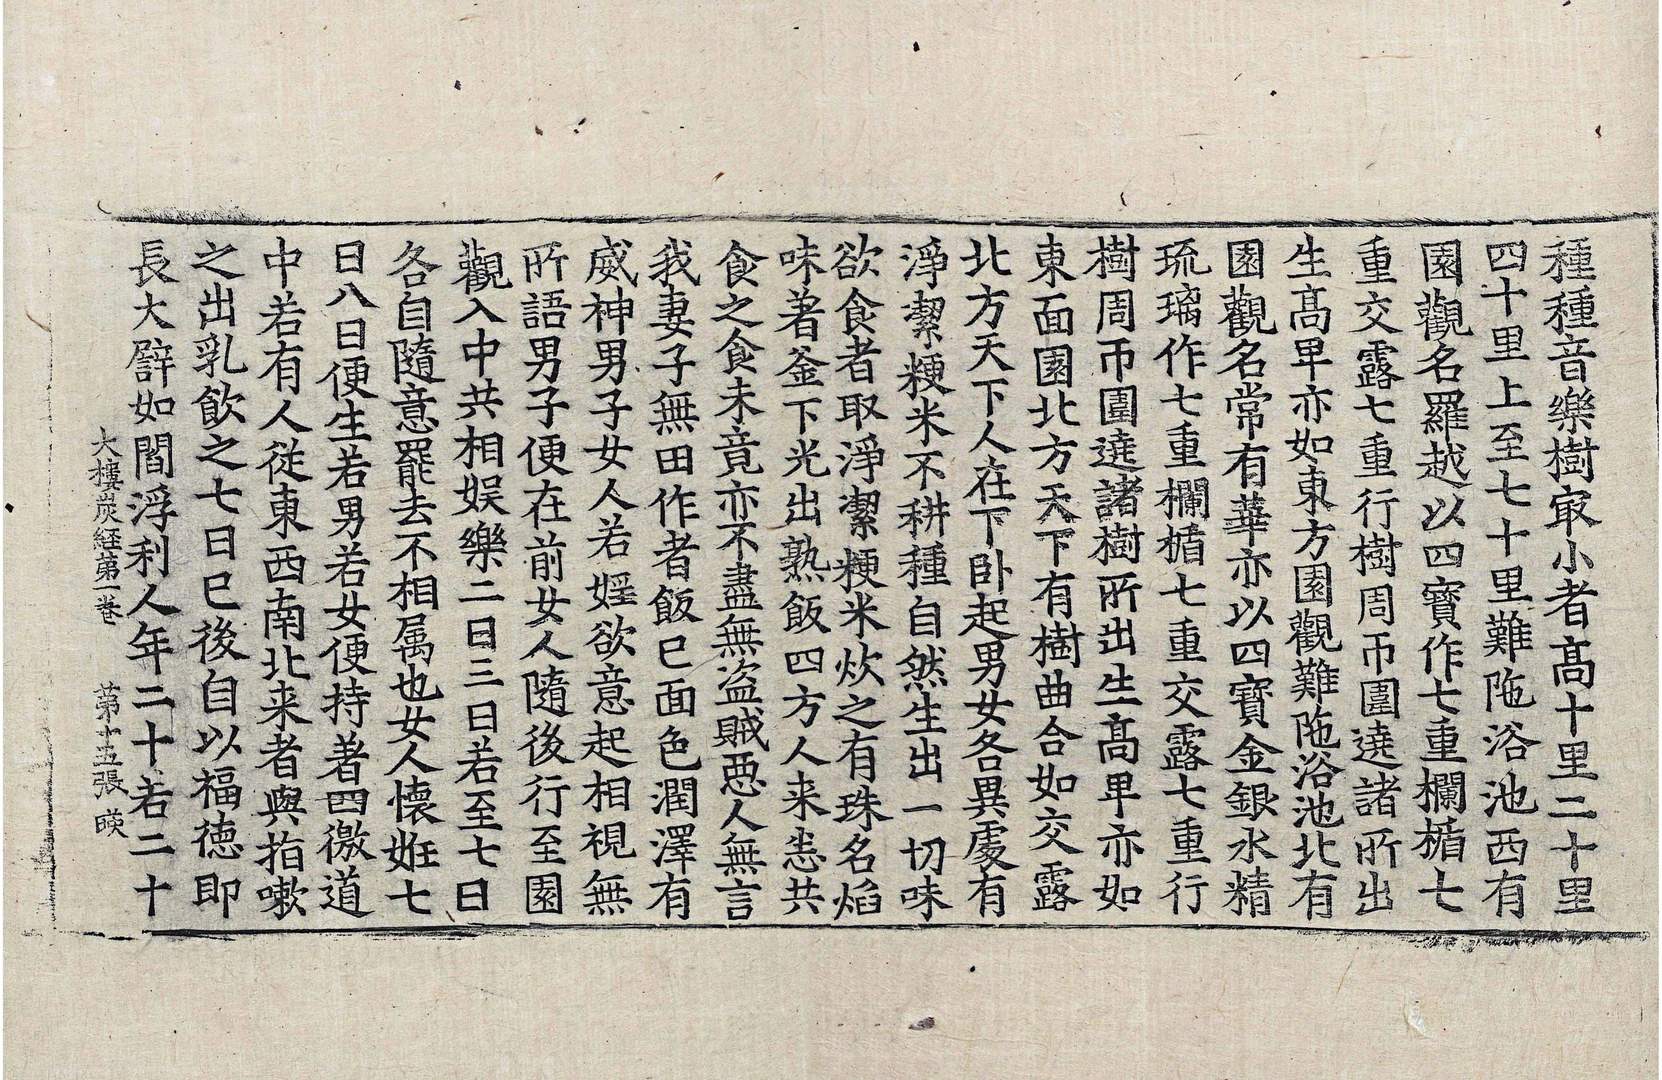 種種音樂樹㝡小者髙十里二十里
四十里上至七十里難陁浴池西有
園觀名羅越以四寳作七重欄楯七
重交露七重行樹周帀圍遶諸所出
生髙卑亦如東方園觀難陁浴池北有
園觀名常有華亦以四寳金銀水精
琉璃作七重欄楯七重交露七重行
樹周帀圍遶諸樹所出生髙卑亦如
東面園北方天下有樹曲合如交露
北方天下人在下卧起男女各異處有
淨潔粳米不耕種自然生出一切味
欲食者取淨潔粳米炊之有珠名焰
味著釜下光出熟飯四方人来恚共
食之食未竟亦不盡無盗賊惡人無言
我妻子無田作者飯已面色潤澤有
威神男子女人若婬欲意起相視無
所語男子便在前女人隨後行至園
觀入中共相娱樂二日三日若至七日
各自隨意罷去不相属也女人懷姙七
日八日便生若男若女便持著四徼道
中若有人從東西南北来者與指嗽
之出乳飲之七日已後自以福德即
長大譬如閻浮利人年二十若二十
大樓炭経第一卷 第十五張 暎